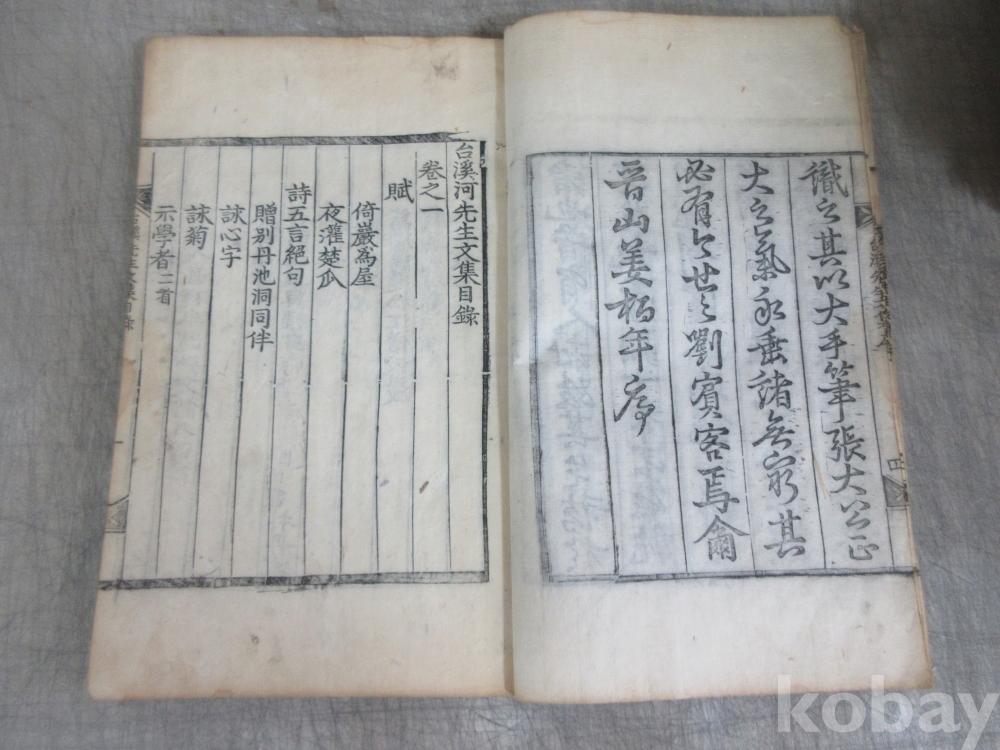 識之其以大手筆張大公正
大之氣永垂諸無窮其
必有今世之劉賓客焉爾
晉山姜栢年序
台溪河先生文集目錄
卷之一
賦
倚巖爲屋
夜灌楚瓜
詩五言絕句
贈別丹池洞同伴
詠心字
詠菊
示學者二首
kobay